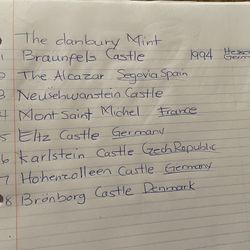 The danbury Mint
1 Braunfels Castle 1994 Hessen Germ
2 The Alcazar Segovia Spain
3 Neuschwanstein Castle
4 Mont Saint Michel France
5 Eltz Castle Germany
6 Karlstein Castle Czech Republic
7 Hohenzolleen Castle Germany
8 Bronborg Castle Denmark